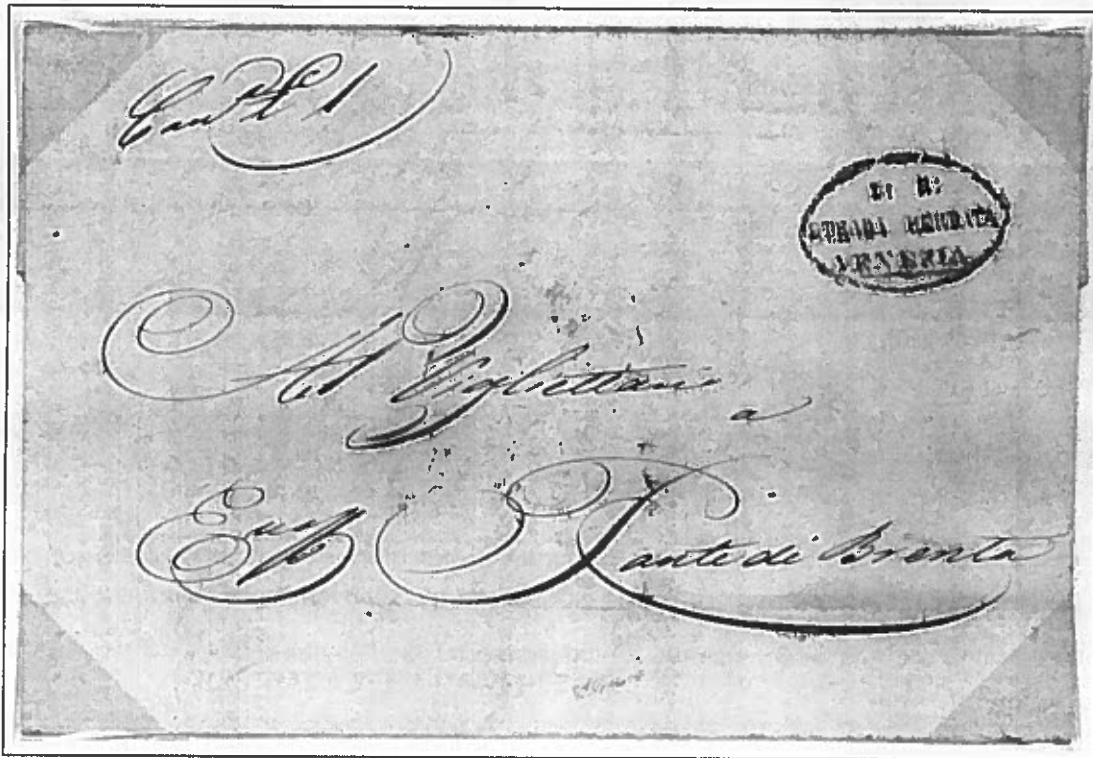 I: R:
STRADA FERRATA
VENEZIA
Al Vigliettario
a
Ponte di Brenta